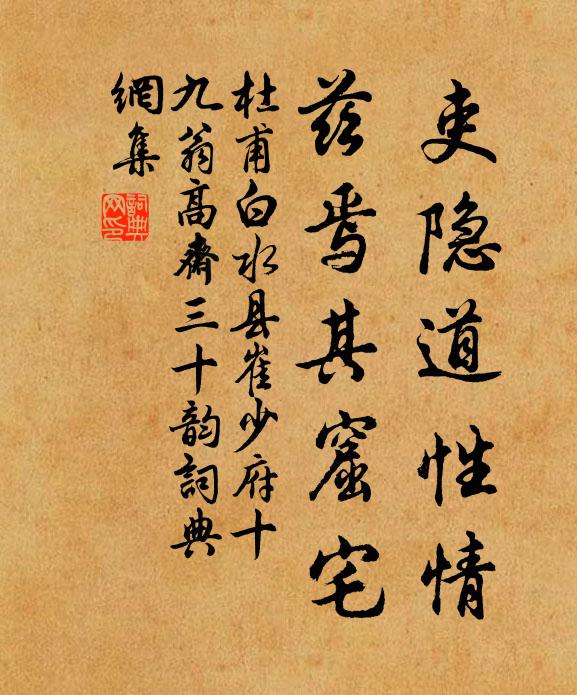 吏隐道性情
兹焉其窟宅
杜甫白水县崔少府十
九翁高齋三十韵詞典
網集
詞典网印